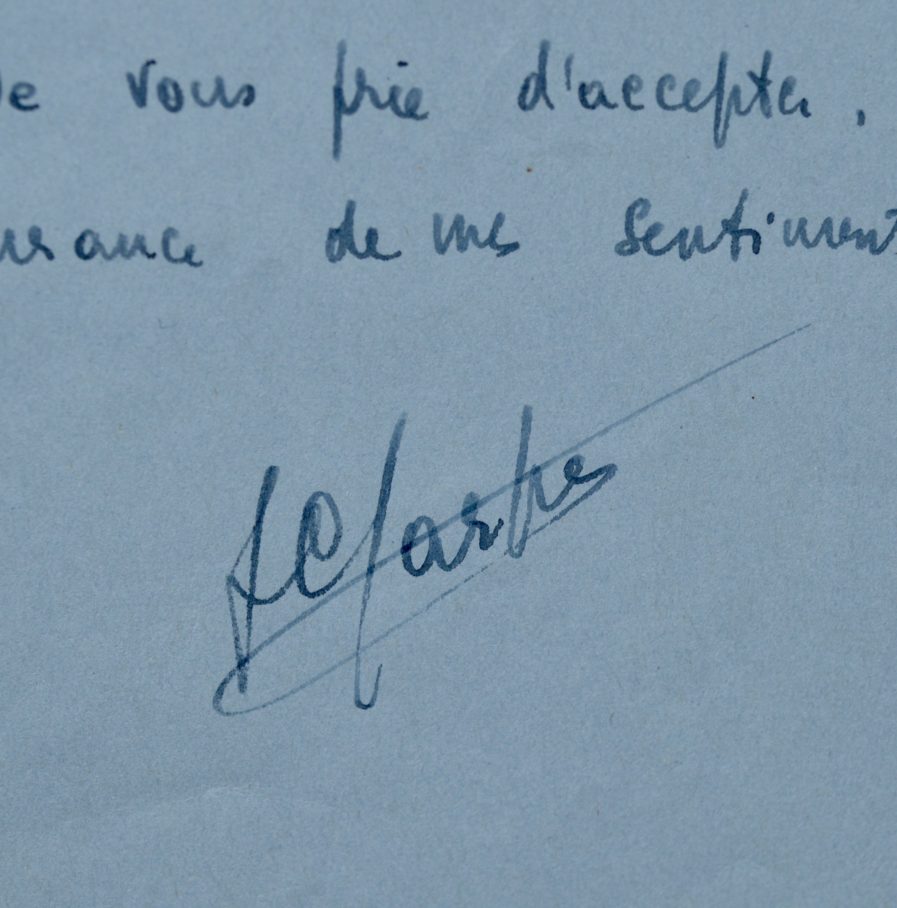 Je vous prie d'accepter,
urance de mes sentiments